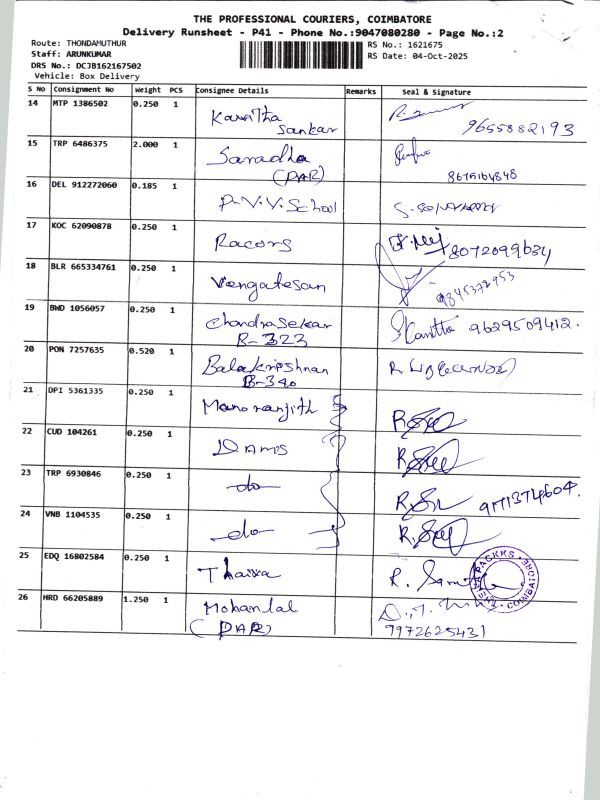 THE PROFESSIONAL COURIERS, COIMBATORE
Delivery Runsheet - P41 - Phone No.:9047080280 - Page No.:2
Route: THONDAMUTHUR
Staff: ARUNKUMAR
DRS No.: DCJB162167502
Vehicle: Box Delivery
RS No.: 1621675
RS Date: 04-Oct-2025
S No Consignment No Weight PCS Consignee Details Remarks Seal & Signature
14 MTP 1386502 0.250 1 Kavitha
Sankar 9655882193
15 TRP 6486375 2.000 1 Saradha
(PAR) 8675164848
16 DEL 912272060 0.185 1 P.V.V. School
17 KOC 62090878 0.250 1 Racors 8072099634
18 BLR 665334761 0.250 1 Vengatesan 9845372953
19 BWD 1056057 0.250 1 Chandrasekar 9629509412.
B-323
20 PON 7257635 0.520 1 Balakrishnan
B-340
21 DPI 5361335 0.250 1 Manoranjith
22 CUD 104261 0.250 1
23 TRP 6930846 0.250 1 -do- 9171374604.
24 VNB 1104535 0.250 1 -do-
25 EDQ 16802584 0.250 1
PACKKS
COIMBATORE
26 HRD 66205889 1.250 1 Mohanlal
(PAR) 9972625431